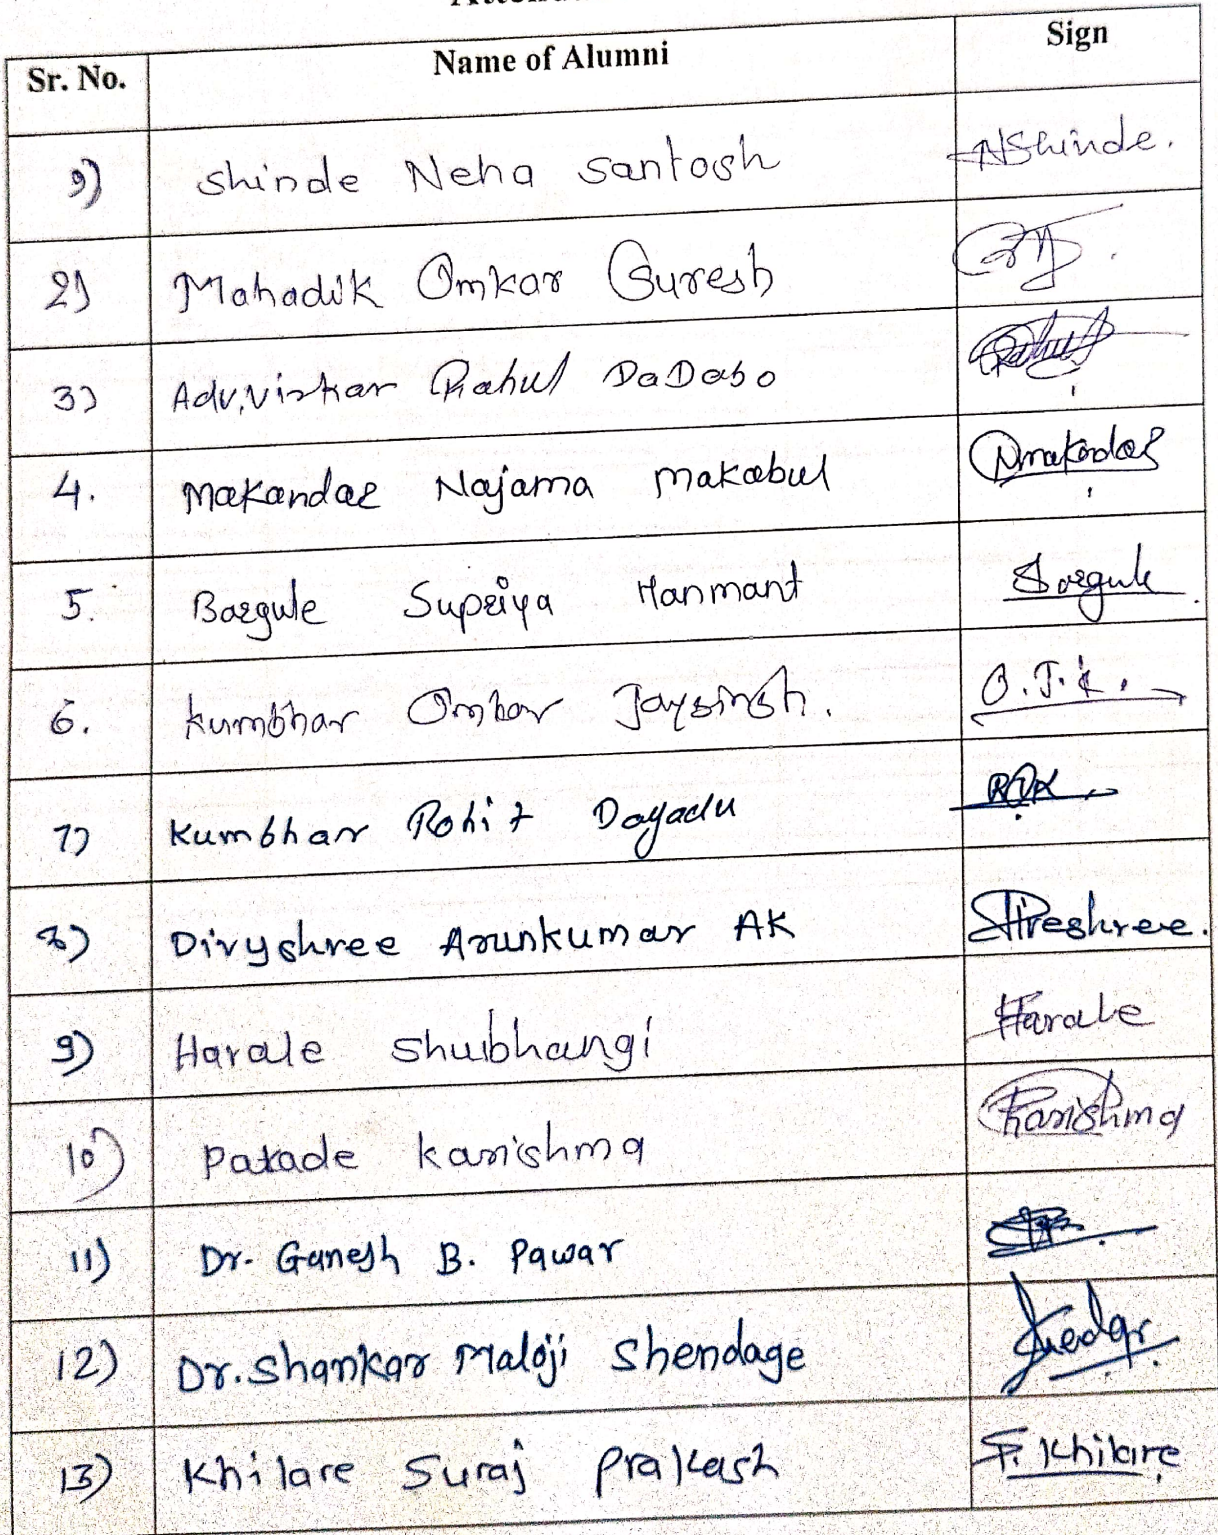 Sr. No. Name of Alumni Sign
1) Shinde Neha Santosh NShinde.
2) Mahadik Omkar Suresh
3) Adv. Virkar Rahul DaDaso Rahul
4. Makandar Najama Makabul Nmakandar
5. Bargule Supriya Hanmant Sargule
6. Kumbhar Omkar Jaysinsh. O.J.K.
7) Kumbhar Rohit Dagadu RDK
8) Divyshree Arunkumar AK
9) Harale Shubhangi Harale
10) Patade Karishma Karishma
11) Dr. Ganesh B. Pawar
12) Dr. Shankar Maloji Shendage
13) Khilare Suraj Prakash S. Khilare